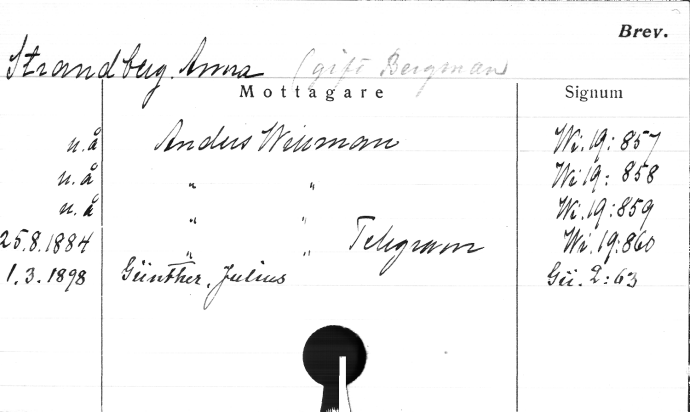 Brev.
Strandberg, Anna (gift Bergman)
Mottagare Signum
u.å Anders Willman Wi.19:857
u.å " " Wi.19:858
u.å " " Wi.19:859
25.8.1884 " " Telegram Wi.19:860
1.3.1898 Günther, Julius Gü.2:63